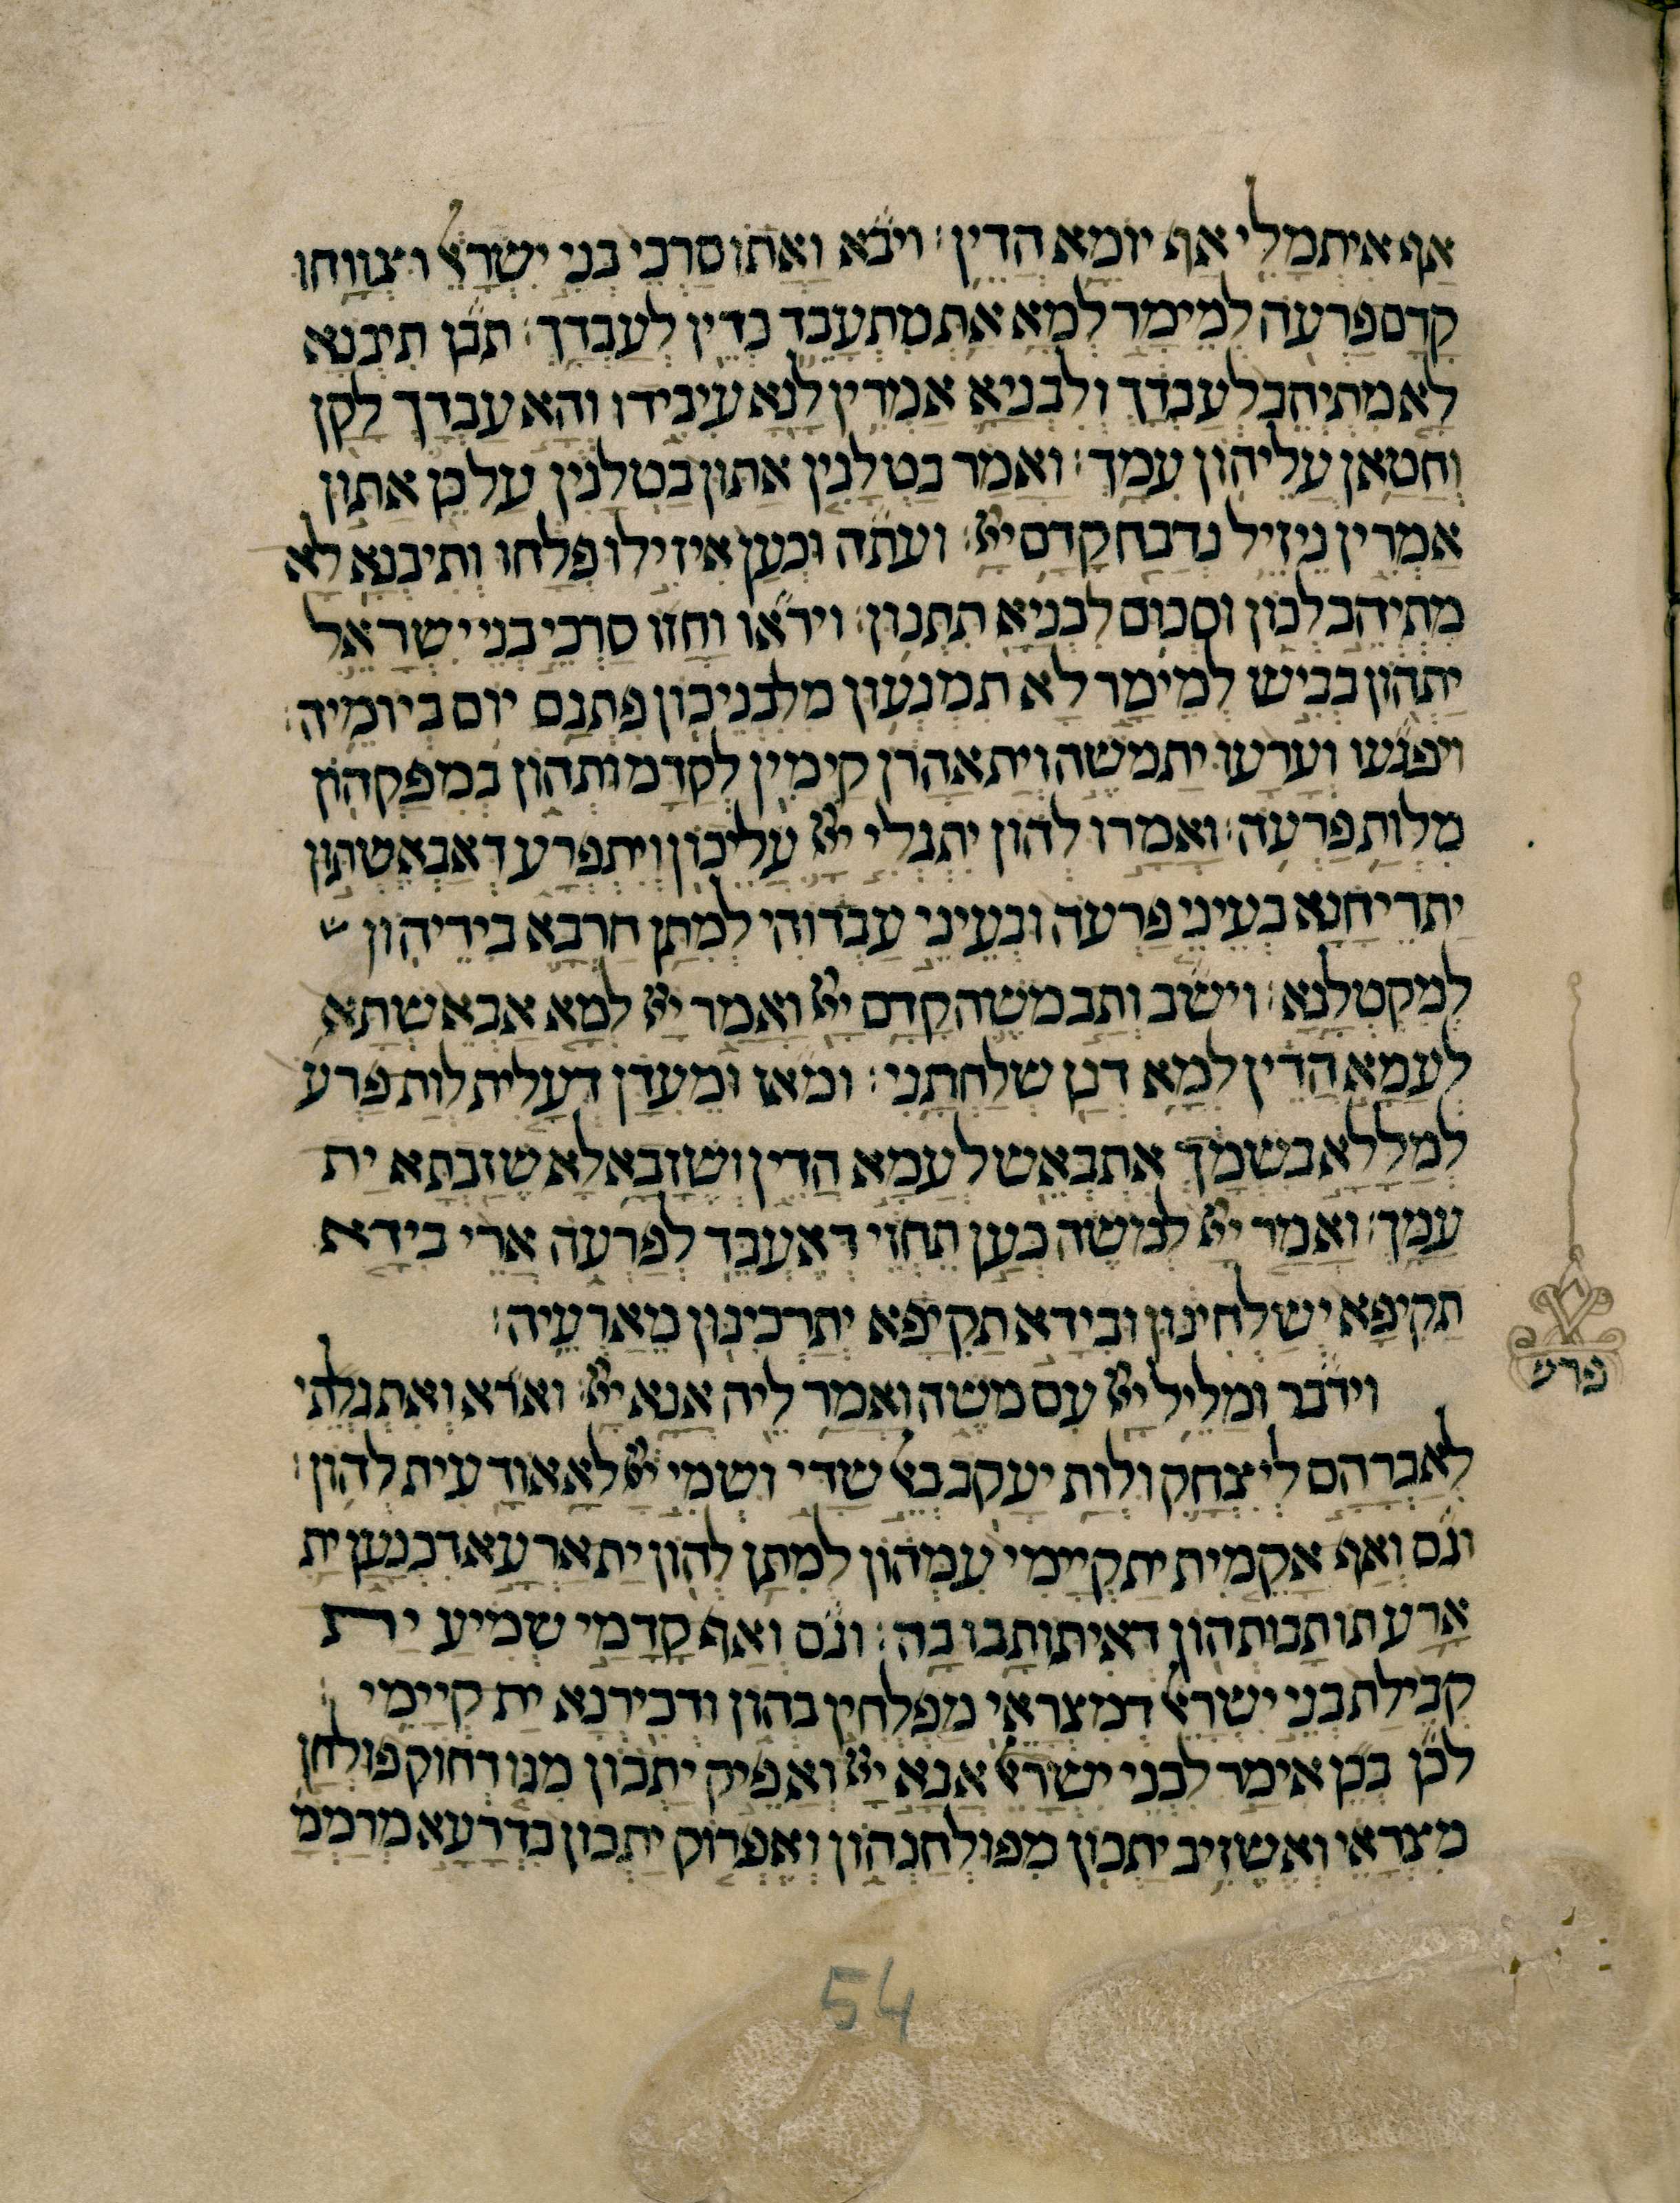 אַף אִיתְמָלֵי אַף יוֹמָא הָדֵין׃ ויבא וַאֲתוֹ סַרְכֵי בְנֵי יִשְׂרָאֵל וּצְוָוחוּ
קֳדָם פַּרְעֹה לְמֵימַר לְמָא אַת מִתְעֲבֵד כְּדֵין לְעַבְדָךְ׃ תבן תִּיבְנָא
לָא מִתְיְהֵב לְעַבְדָךְ וְלִבְנַיָא אָמְרִין לַנָא עִיבִידוּ וְהָא עַבְדָךְ לָקַן
וְחָטְאָן עֲלֵיהוֹן עַמָךְ׃ וַאֲמַר בַּטְלָנִין אַתּוּן בַּטְלָנִין עַל כֵּן אַתּוּן
אָמְרִין נֵיזֵיל נְדַבַּח קֳדָם יְיָ׃ ועתה וּכְעַן אִיזִילוּ פְּלָחוּ וְתִיבְנָא לָא
מִתְיְהֵב לְכוֹן וּסְכוֹם לִבְנַיָא תִּתְּנוּן׃ ויראו וַחֲזוֹ סָרְכֵי בְּנֵי יִשְׂרָאֵל
יָתְהוֹן בְּבִישׁ לְמֵימַר לָא תִמְנְעוּן מִלִבְנֵיכוֹן פִּתְגָם יוֹם בְּיוֹמֵיהּ׃
ויפגעו וְעָרָעוּ יַת מֹשֶׁה וְיַת אַהֲרֹן קָיְמִין לְקַדָמוּתְהוֹן בְּמִפַּקְהוֹן
מִלְוָת פַּרְעֹה׃ וַאֲמַרוּ לְהוֹן יִתְגְלֵי יְיָ עֲלֵיכוֹן וְיִתְפְּרַע דְאַבְאֵשְׁתּוּן
יַת רֵיחַנָא בְּעֵינֵי פַרְעֹה וּבְעֵינֵי עַבְדוֹהִי לְמִתַּן חַרְבָּא בִידֵיהוֹן
לְמִקְטְלַנָא׃ וישב וְתָב מֹשֶׁה קֳדָם יְיָ וַאֲמַר יְיָ לְמָא אַבְאֵשְׁתָּא
לְעַמָא הָדֵין לְמָא דְנָן שְׁלַחְתָּנִי׃ ומאז וּמֵעִדָן דְעָלִית לְוָת פַּרְעֹ
לְמַלָלָא בִּשְׁמָךְ אִתְבְּאֵשׁ לְעַמָא הָדֵין וְשֵׁזָבָא לָא שֵׁזֵבְתָּא יַת
עַמָךְ׃ וַאֲמַר יְיָ לְמֹשֶׁה כְּעַן תִּחְזֵי דְאַעְבֵּד לְפַרְעֹה אֲרֵי בִידָא
תַקִיפָא יְשַׁלְחִינוּן וּבִידָא תַקִיפָא יְתָרֵכִינוּן מֵאַרְעֵיהּ׃
וידבר וּמַלֵיל יְיָ עִם מֹשֶׁה וַאֲמַר לֵיהּ אֲנָא יְיָ׃ וארא וְאִתְגְלֵתִי
לְאַבְרָהָם לְיִצְחָק וּלְוָת יַעֲקֹב בְּאֵל שַׁדַי וּשְׁמִי יְיָ לָא אוֹדָעִית לְהוֹן׃
וגם וְאַף אֲקֵמִית יַת קְיָימִי עִמְהוֹן לְמִתַּן לְהוֹן יַת אַרְעָא דִכְנָעַן יַת
אֲרַע תּוֹתָבוּתְהוֹן דְאִיתּוֹתָבוּ בַהּ׃ וגם וְאַף קֳדָמַי שְׁמִיעַ יַת
קְבֵילַת בְּנֵי יִשְׂרָאֵל דְמִצְרָאֵי מַפְלְחִין בְּהוֹן וּדְכִירְנָא יַת קְיָימִי׃
לכן בְּכֵן אֵימַר לִבְנֵי יִשְׂרָאֵל אֲנָא יְיָ וְאַפֵּיק יָתְכוֹן מִגוֹ דְחוֹק פּוּלְחַן
מִצְרָאֵי וַאֲשֵׁיזֵיב יָתְכוֹן מִפּוּלְחַנְהוֹן וְאֶפְרוֹק יָתְכוֹן בִּדְרָעָא מְרָמְמָ
פרש
54